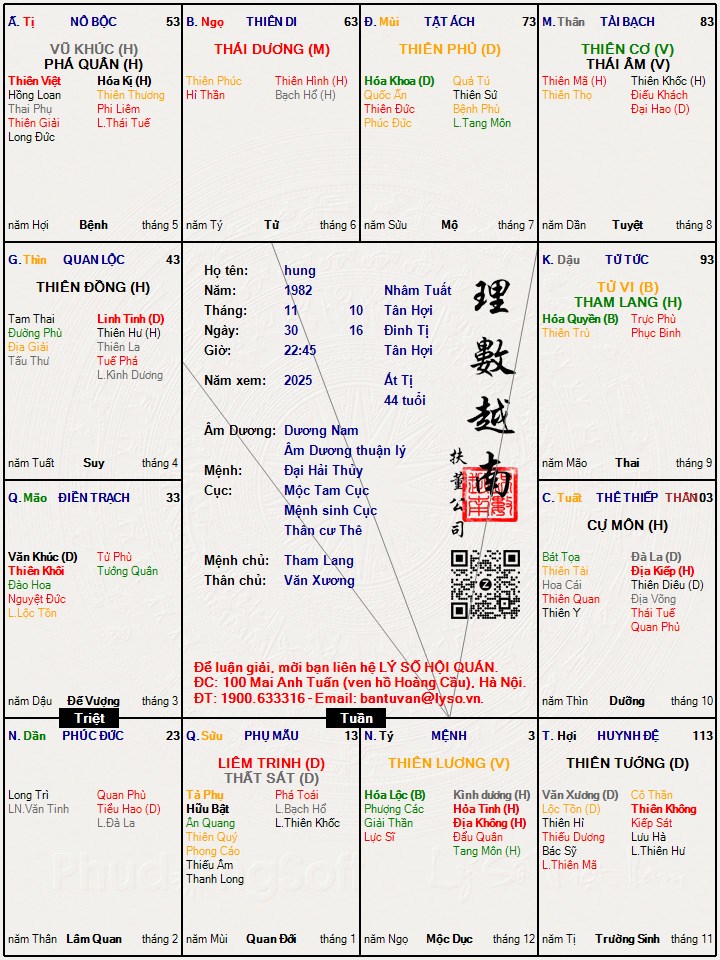 Ấ. Tị NÔ BỘC 53
VŨ KHÚC (H)
PHÁ QUÂN (H)
Thiên Việt Hóa Kị (H)
Hồng Loan Thiên Thương
Thai Phụ Phi Liêm
Thiên Giải L.Thái Tuế
Long Đức
năm Hợi Bệnh tháng 5
B. Ngọ THIÊN DI 63
THÁI DƯƠNG (M)
Thiên Phúc Thiên Hình (H)
Hỉ Thần Bạch Hổ (H)
năm Tý Tử tháng 6
Đ. Mùi TẬT ÁCH 73
THIÊN PHỦ (D)
Hóa Khoa (D) Quả Tú
Quốc Ấn Thiên Sứ
Thiên Đức Bệnh Phù
Phúc Đức L.Tang Môn
năm Sửu Mộ tháng 7
M. Thân TÀI BẠCH 83
THIÊN CƠ (V)
THÁI ÂM (V)
Thiên Mã (H) Thiên Khốc (H)
Thiên Thọ Điếu Khách
Đại Hao (D)
năm Dần Tuyệt tháng 8
G. Thìn QUAN LỘC 43
THIÊN ĐỒNG (H)
Tam Thai Linh Tinh (D)
Đường Phù Thiên Hư (H)
Địa Giải Thiên La
Tấu Thư Tuế Phá
L.Kình Dương
năm Tuất Suy tháng 4
Họ tên: hung
Năm: 1982 Nhâm Tuất
Tháng: 11 10 Tân Hợi
Ngày: 30 16 Đinh Tị
Giờ: 22:45 Tân Hợi
Năm xem: 2025 Ất Tị
44 tuổi
Âm Dương: Dương Nam
Âm Dương thuận lý
Mệnh: Đại Hải Thủy
Cục: Mộc Tam Cục
Mệnh sinh Cục
Thân cư Thê
Mệnh chủ: Tham Lang
Thân chủ: Văn Xương
理數越南
扶董公司
Để luận giải, mời bạn liên hệ LÝ SỐ HỘI QUÁN.
ĐC: 100 Mai Anh Tuấn (ven hồ Hoàng Cầu), Hà Nội.
ĐT: 1900.633316 - Email: bantuvan@lyso.vn.
K. Dậu TỬ TỨC 93
TỬ VI (B)
THAM LANG (H)
Hóa Quyền (B) Trực Phù
Thiên Trù Phục Binh
năm Mão Thai tháng 9
Q. Mão ĐIỀN TRẠCH 33
Văn Khúc (D) Tử Phù
Thiên Khôi Tướng Quân
Đào Hoa
Nguyệt Đức
L.Lộc Tồn
năm Dậu Đế Vượng tháng 3
C. Tuất THÊ THIẾP THÂN 103
CỰ MÔN (H)
Bát Tọa Đà La (D)
Thiên Tài Địa Kiếp (H)
Hoa Cái Thiên Diêu (D)
Thiên Quan Địa Võng
Thiên Y Thái Tuế
Quan Phủ
năm Thìn Dưỡng tháng 10
Triệt
Tuần
N. Dần PHÚC ĐỨC 23
Long Trì Quan Phù
LN.Văn Tinh Tiểu Hao (D)
L.Đà La
năm Thân Lâm Quan tháng 2
Q. Sửu PHỤ MẪU 13
LIÊM TRINH (D)
THẤT SÁT (D)
Tả Phụ Phá Toái
Hữu Bật L.Bạch Hổ
Ân Quang L.Thiên Khốc
Thiên Quý
Phong Cáo
Thiếu Âm
Thanh Long
năm Mùi Quan Đới tháng 1
N. Tý MỆNH 3
THIÊN LƯƠNG (V)
Hóa Lộc (B) Kình dương (H)
Phượng Các Hỏa Tinh (H)
Giải Thần Địa Không (H)
Lực Sĩ Đẩu Quân
Tang Môn (H)
năm Ngọ Mộc Dục tháng 12
T. Hợi HUYNH ĐỆ 113
THIÊN TƯỚNG (D)
Văn Xương (D) Cô Thần
Lộc Tồn (D) Thiên Không
Thiên Hỉ Kiếp Sát
Thiếu Dương Lưu Hà
Bác Sỹ L.Thiên Hư
L.Thiên Mã
năm Tị Trường Sinh tháng 11